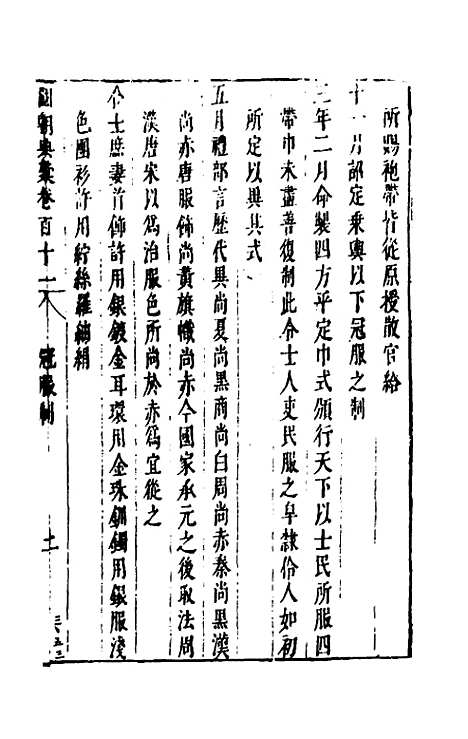 所賜袍帶皆從原授散官給
十一月詔定乘輿以下冠服之制
三年二月命製四方平定巾式頒行天下以士民所服四
帶巾未盡善復制此令士人吏民服之皁隸伶人如初
所定以異其式
五月禮部言歷代異尚夏尚黑商尚白周尚赤秦尚黑漢
尚赤唐服飾尚黃旗幟尚赤今國家承元之後取法周
漢唐宋以為治服色所尚於赤為宜從之
令士庶妻首飾許用銀鍍金耳環用金珠釧鐲用銀服淺
色團衫許用紵絲羅紬絹
國朝典彙卷百十一 冠服制 二